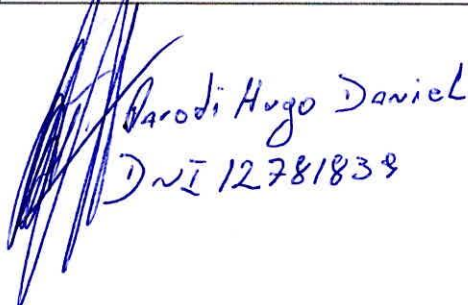 Parodi Hugo Daniel
DNI 12781839